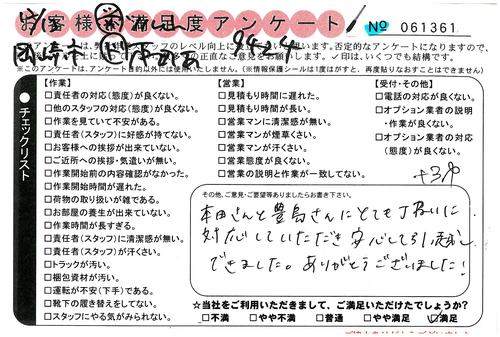 お客様不満足度アンケート № 061361
否定的なアンケートになりますので、
ご意見をお願いします。✓印は、いくつでも結構です。
※このアンケートは、アンケート目的以外には使用いたしません。(※情報保護シールは1度はがすと、再度貼りなおすことはできません)
チェックリスト
【作業】
□責任者の対応(態度)が良くない。
□他のスタッフの対応(態度)が良くない。
□作業を見ていて不安がある。
□責任者(スタッフ)に好感が持てない。
□お客様への挨拶が出来ていない。
□ご近所への挨拶・気遣いが無い。
□作業開始前の内容確認がなかった。
□作業開始時間が遅れた。
□荷物の取り扱いが雑である。
□お部屋の養生が出来ていない。
□作業時間が長すぎる。
□責任者(スタッフ)に清潔感が無い。
□責任者(スタッフ)が汗くさい。
□トラックが汚い。
□梱包資材が汚い。
□運転が不安(下手)である。
□靴下の履き替えをしてない。
□スタッフにやる気がみられない。
【営業】
□見積もり時間に遅れた。
□見積もり時間が長い。
□営業マンに清潔感が無い。
□営業マンが煙草くさい。
□営業マンが汗くさい。
□営業態度が良くない。
□営業の説明と作業が一致してない。
【受付・その他】
□電話の対応が良くない。
□オプション業者の説明
・作業が良くない。
□オプション業者の対応
(態度)が良くない。
+3%
その他、ご意見・ご要望等ありましたらお書き下さい。
本田さんと豊島さんにとても丁寧に
対応していただき安心して引越し
できました。ありがとうございました!
☆当社をご利用いただきまして、ご満足いただけたでしょうか?
□不満 □やや不満 □普通 □やや満足 ☑満足